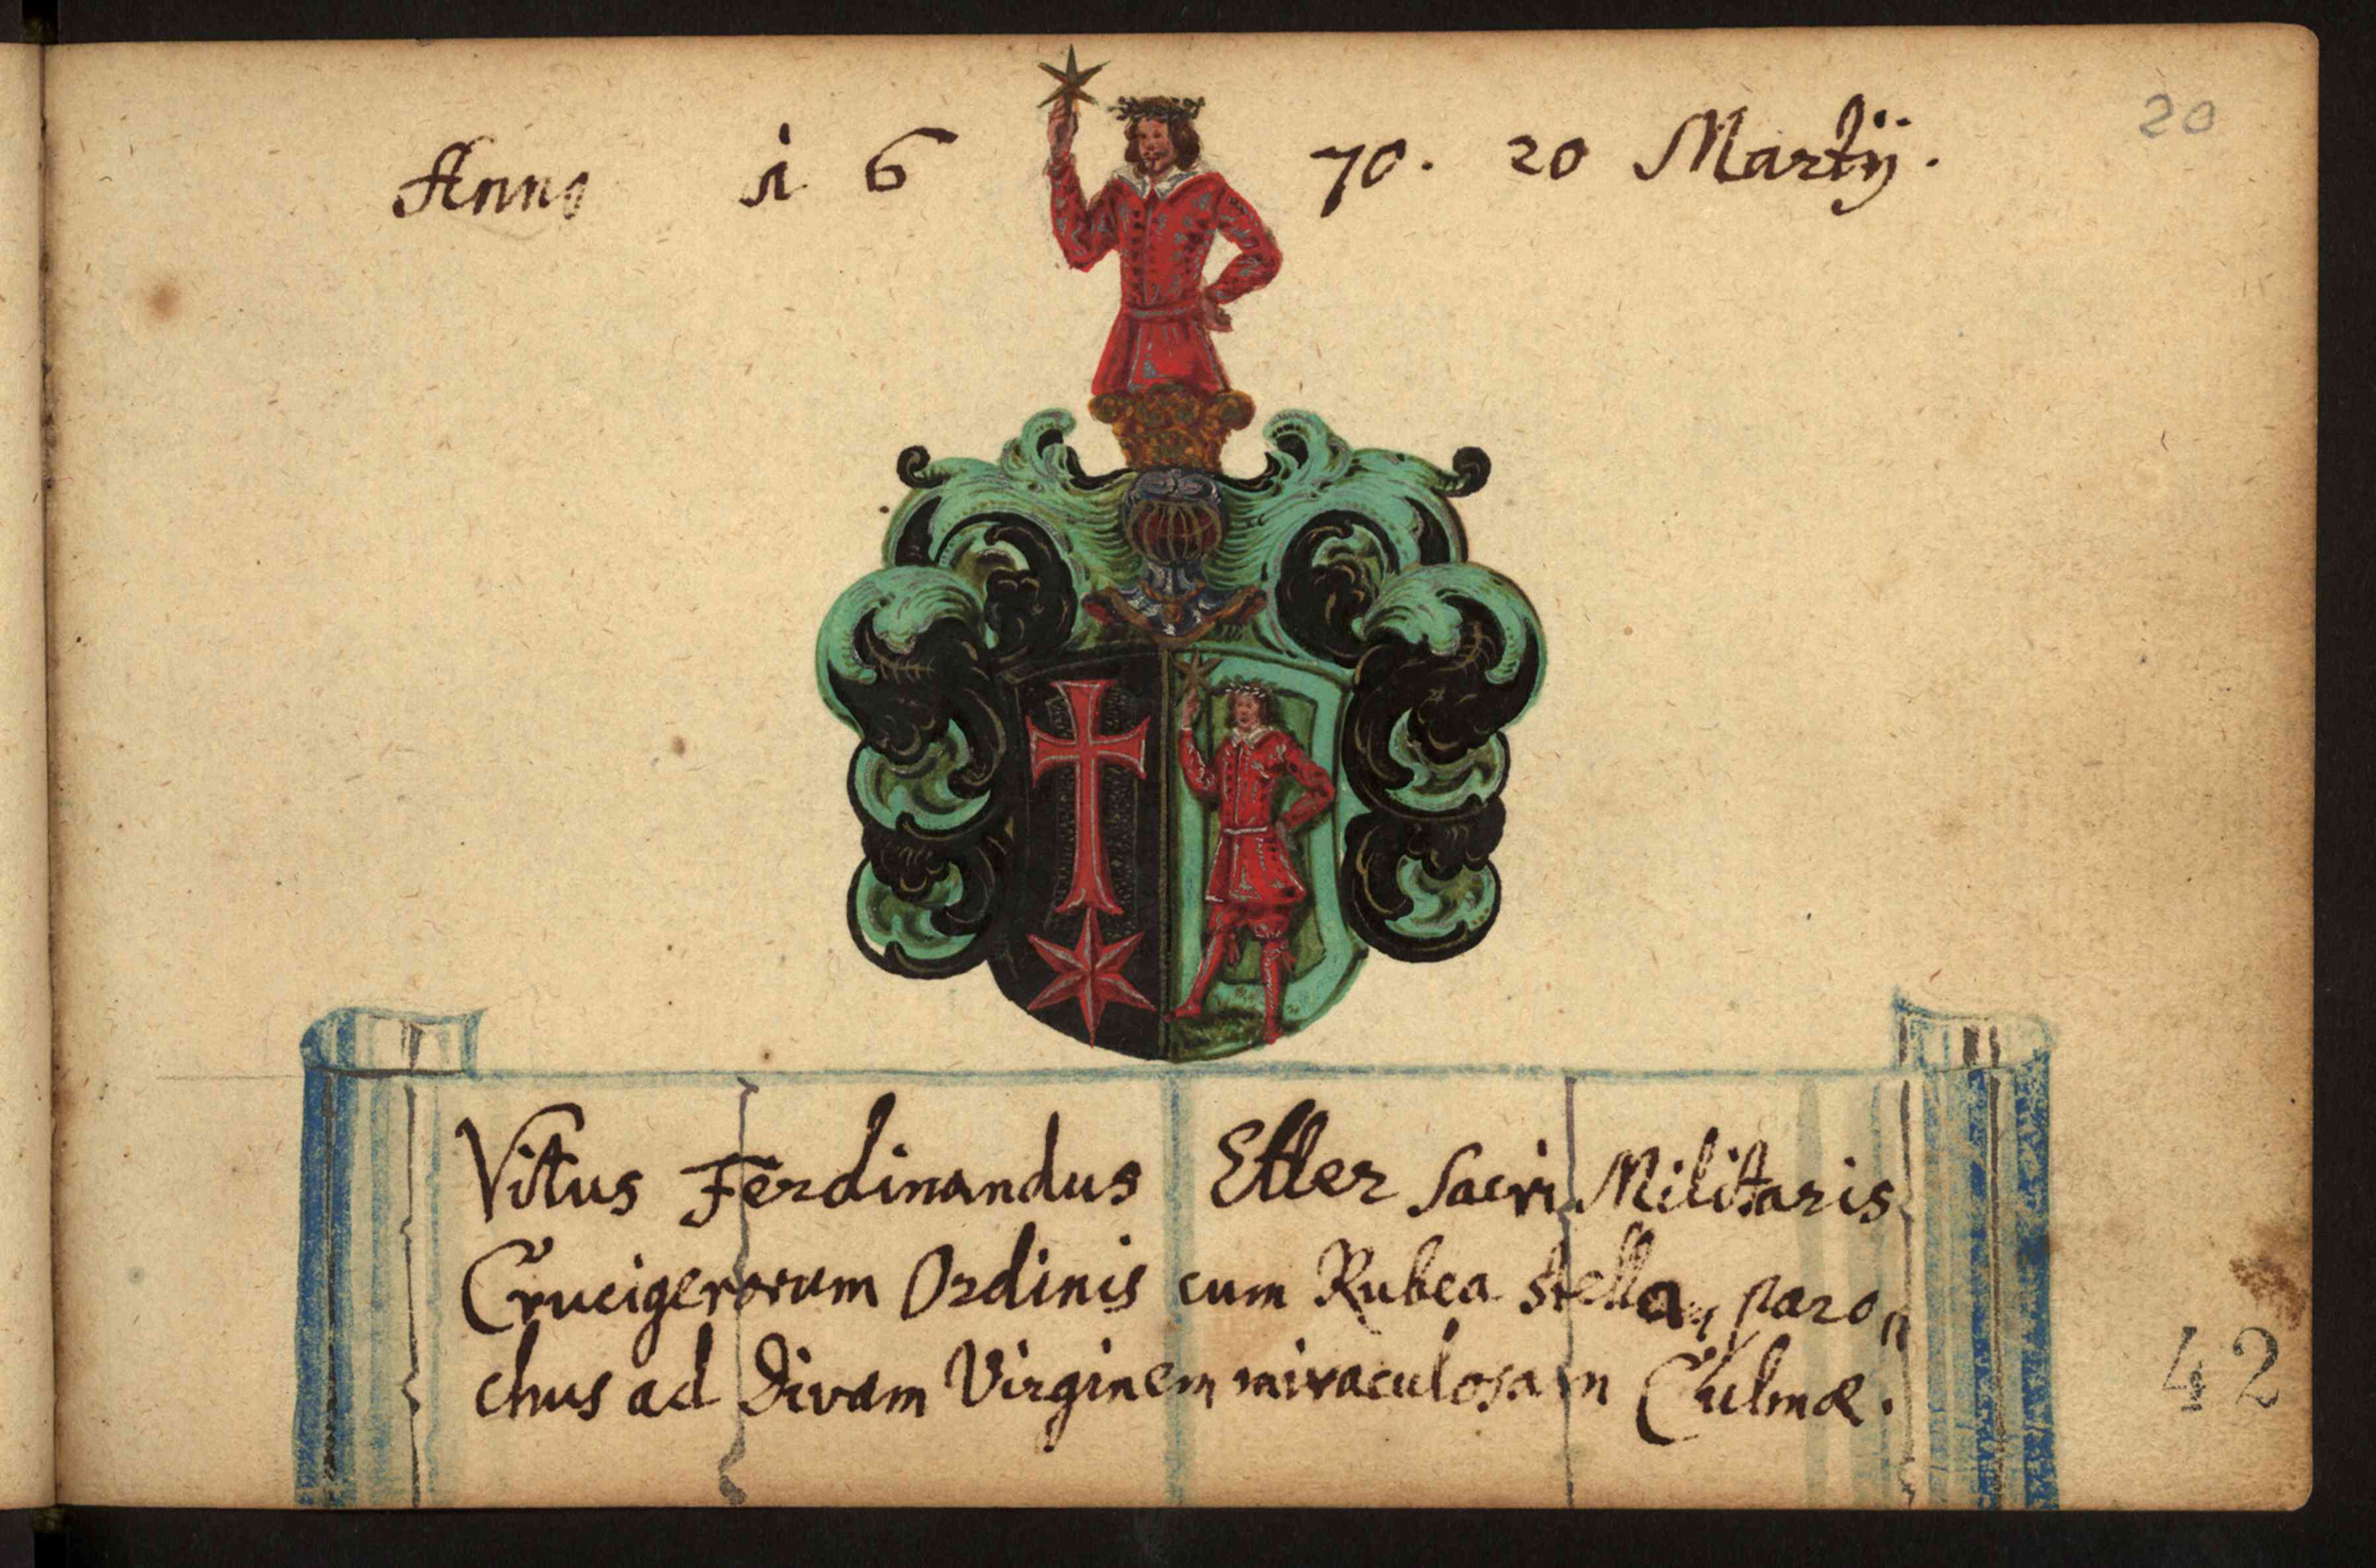 Anno 1670. 20 Martij.
20
Vitus Ferdinandus Etler Sacri Militaris
Crucigerorum Ordinis cum Rubea stella, paro„
chus ad Divam Virginem miraculosam Culmæ.
42